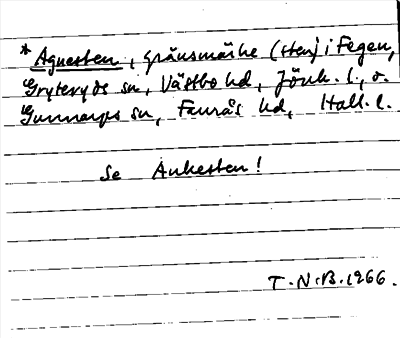 * Agnesten, gränsmärke (sten) i Fegen,
Gryteryds sn, Västbo hd, Jönk. l., o.
Gunnarps sn, Faurås hd, Hall. l.
Se Ankesten!
T.N.B. 1966.